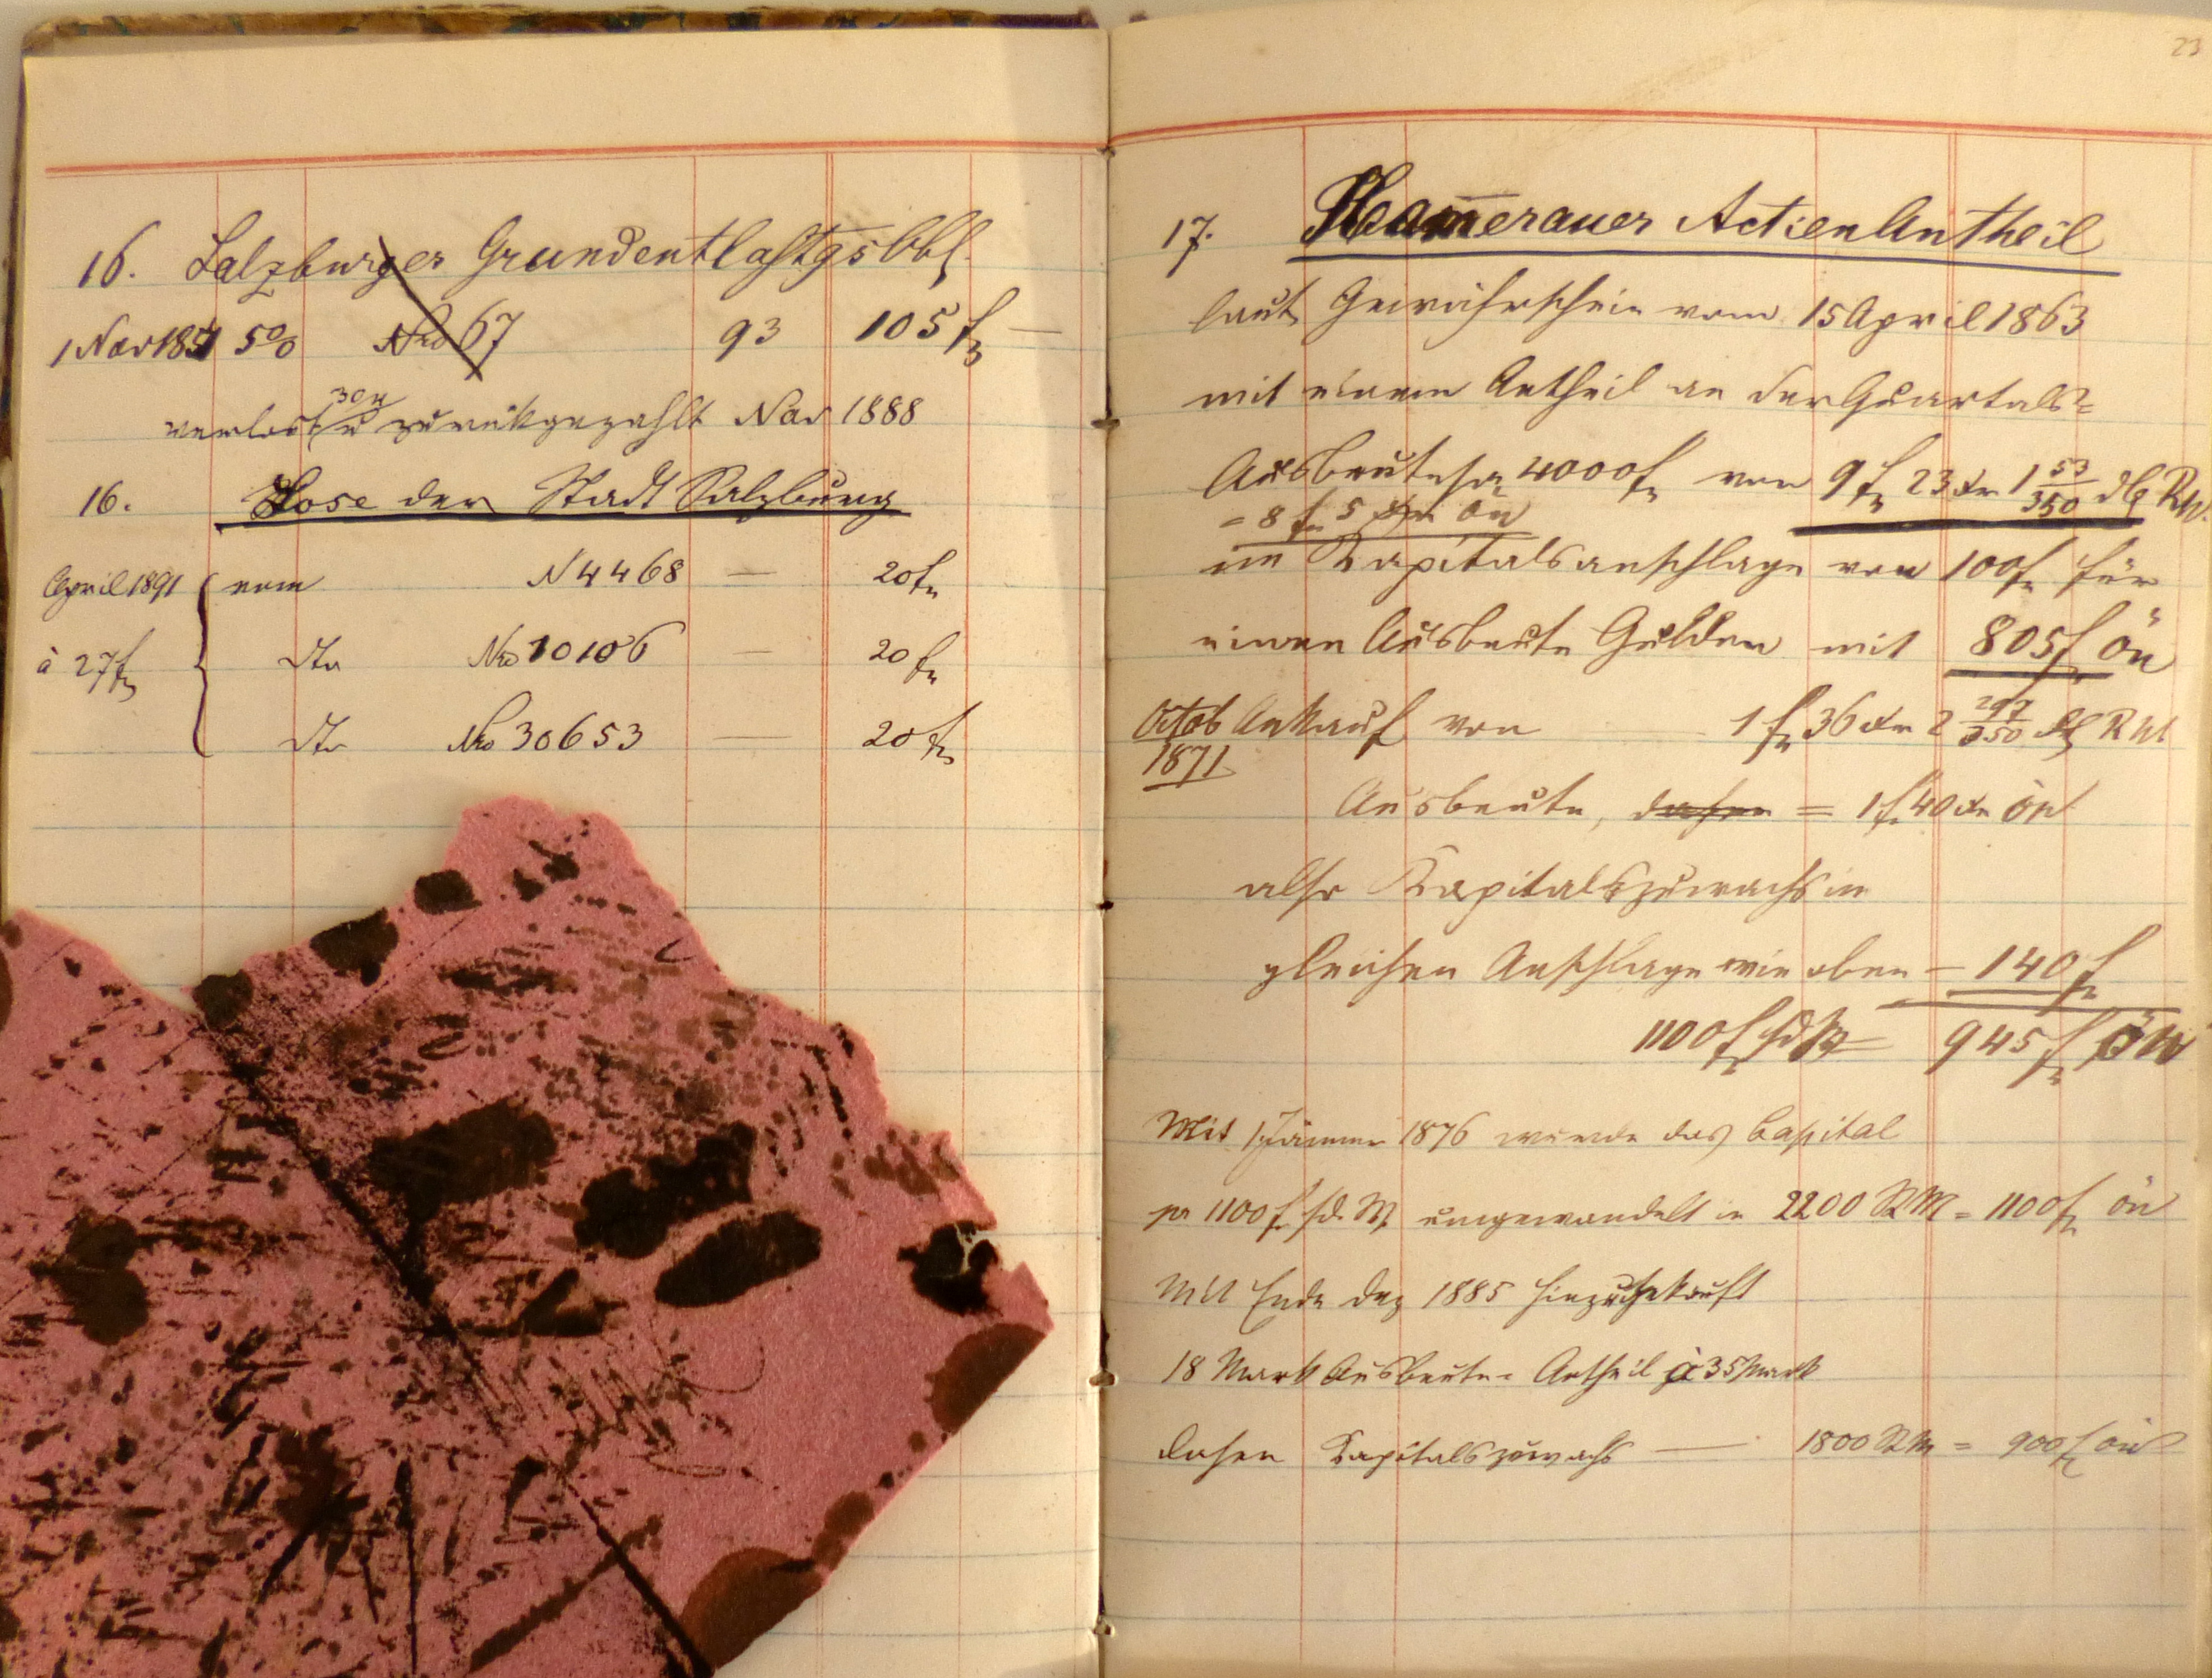 16. Salzburger Grundentlastgs Obl.
1 Nov 1851 5% Nro 67 93 105 f —
verlost 30/4 u zurükgezahlt Nov 1888
16. Lose der Stadt Salzburg
April 1891 vom N 4468 — 20 f
à 27 f dto Nro 10106 — 20 f
dto Nro 30653 — 20 f
23
17. Hammerauer Actien Antheil
laut Gewährschein vom 15 April 1863
mit einem Antheil an der Quartals=
Ausbeute 4000 f von 9 f 23 xr 1 53/350 dl RW.
= 8 f 5 xr ÖW
im Kapitalsanschlage von 100 f für
einen Ausbeute Gulden mit 805 f ÖW
Octob 1871 Ankauf von 1 f 36 xr 2 297/350 dl RW
Ausbeute, daher = 1 f 40 xr ÖW
also Kapitalszuwachs im
gleichen Anschlage wie oben — 140 f
1100 f sdW = 945 f ÖW
Mit 1 Jänner 1876 wurde das Capital
pr 1100 f sd. W. umgewandelt in 2200 RM = 1100 f ÖW
Mit Ende Dez 1885 hinzugekauft
18 Mark Ausbeute = Antheil à 35 Mark
daher Kapitalszuwachs — 1800 RM = 900 f ÖW